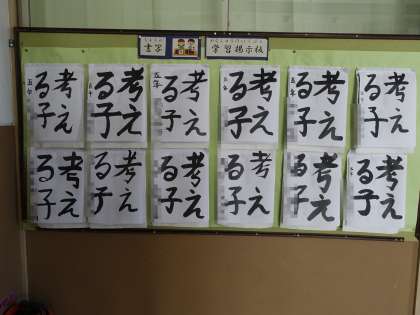 書写
学習掲示板
考える子
五年
考える子
考える子
五年
考える子
考える子
考える子
考える子
考える子
考える子
考える子
考える子
考える子